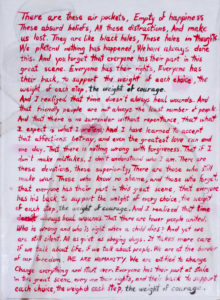 There are these air pockets, Empty of happiness
These absurd beliefs, All these distractions, And make
us lost. They are like black holes, These holes in thoughts
We pretend nothing has happened, We have always done
this. And you forget that everyone has their part in this
great scene. Everyone has their rights, Everyone has
their back, to support the weight of each choice, the
weight of each step, the weight of courage.
And I realized that time doesn't always heal wounds. And
that friends people are not always the ideal number of people
And that there is no surrender without repentance, that what
I expect is what I And I have learned to accept
that affections betray, and even the greatest love can end
one day, That there is nothing wrong with forgiveness. That if I
don't make mistakes, I don't understand who I am. There are
these devotions, these superiority There are those who
who. Those who know to alone, and those who forget
that everyone has their part in this great scene. That everyone
has his back, to support the weight of every choice, the weight
of each step, the weight of courage. And I realized that time
always heal wounds. That there are power people united.
Who is strong and who is right when a child dies? And yet we
are still silent. As as obeying dogs. It takes more care
If we talk about life, if we talk about people. We are at the border
of our freedom, WE ARE HUMANITY We are entitled to change
Change everything and still
in this great scene, every one their rights, and their back to support
each choice, the weight each step, the weight of courage.